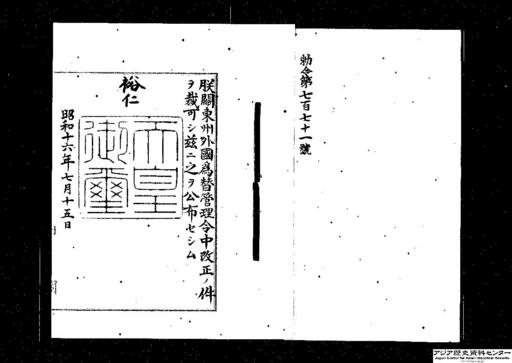 勅令第七百七十一號
朕關東州外國爲替管理令中改正ノ件
ヲ裁可シ茲ニ之ヲ公布セシム
裕仁
天皇
御璽
昭和十六年七月十五日
アジア歴史資料センター
Japan Center for Asian Historical Records